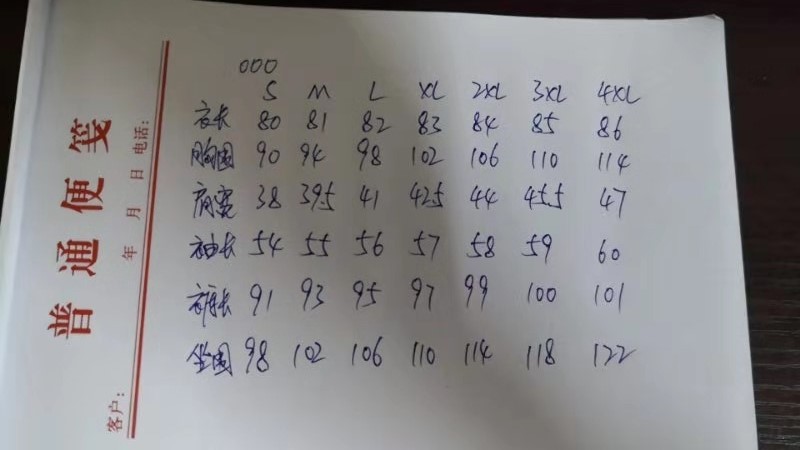 普通便笺
客户: 年 月 日 电话:
000
S M L XL 2XL 3XL 4XL
衣长 80 81 82 83 84 85 86
胸围 90 94 98 102 106 110 114
肩宽 38 39.5 41 42.5 44 45.5 47
袖长 54 55 56 57 58 59 60
裤长 91 93 95 97 99 100 101
坐围 98 102 106 110 114 118 122